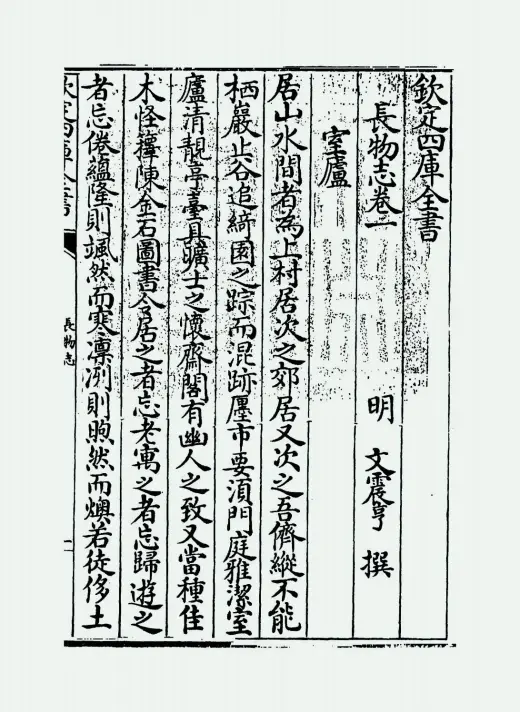 欽定四庫全書
長物志卷一
明 文震亨 撰
室廬
居山水間者為上村居次之郊居又次之吾儕縱不能
栖巖止谷追綺園之踪而混跡廛市要須門庭雅潔室
廬清靚亭臺具曠士之懷齋閣有幽人之致又當種佳
木怪籜陳金石圖書令居之者忘老寓之者忘歸遊之
者忘倦蘊隆則颯然而寒凛冽則煦然而燠若徒侈土
欽定四庫全書
長物志
一